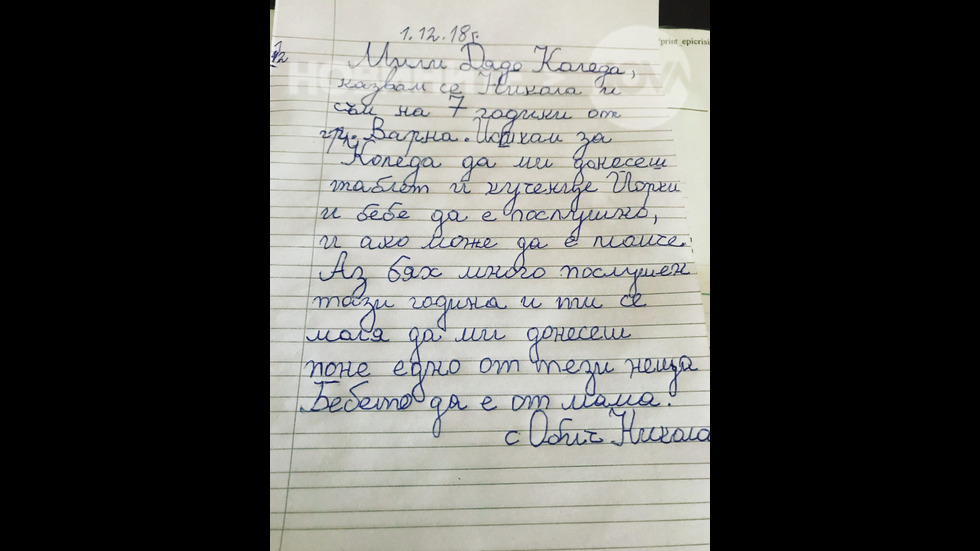 1.12.18г.
Мили Дядо Коледа,
казвам се Никола и
съм на 7 годики от
гр. Варна. Искам за
Коледа да ми донесеш
таблет и кученце Йорки
и бебе да е послушно,
и ако може да е момиче.
Аз бях много послушен
тази година и ти се
моля да ми донесеш
поне едно от тези неща
Бебето да е от мама.
с Обич Никола
print_epicrisi